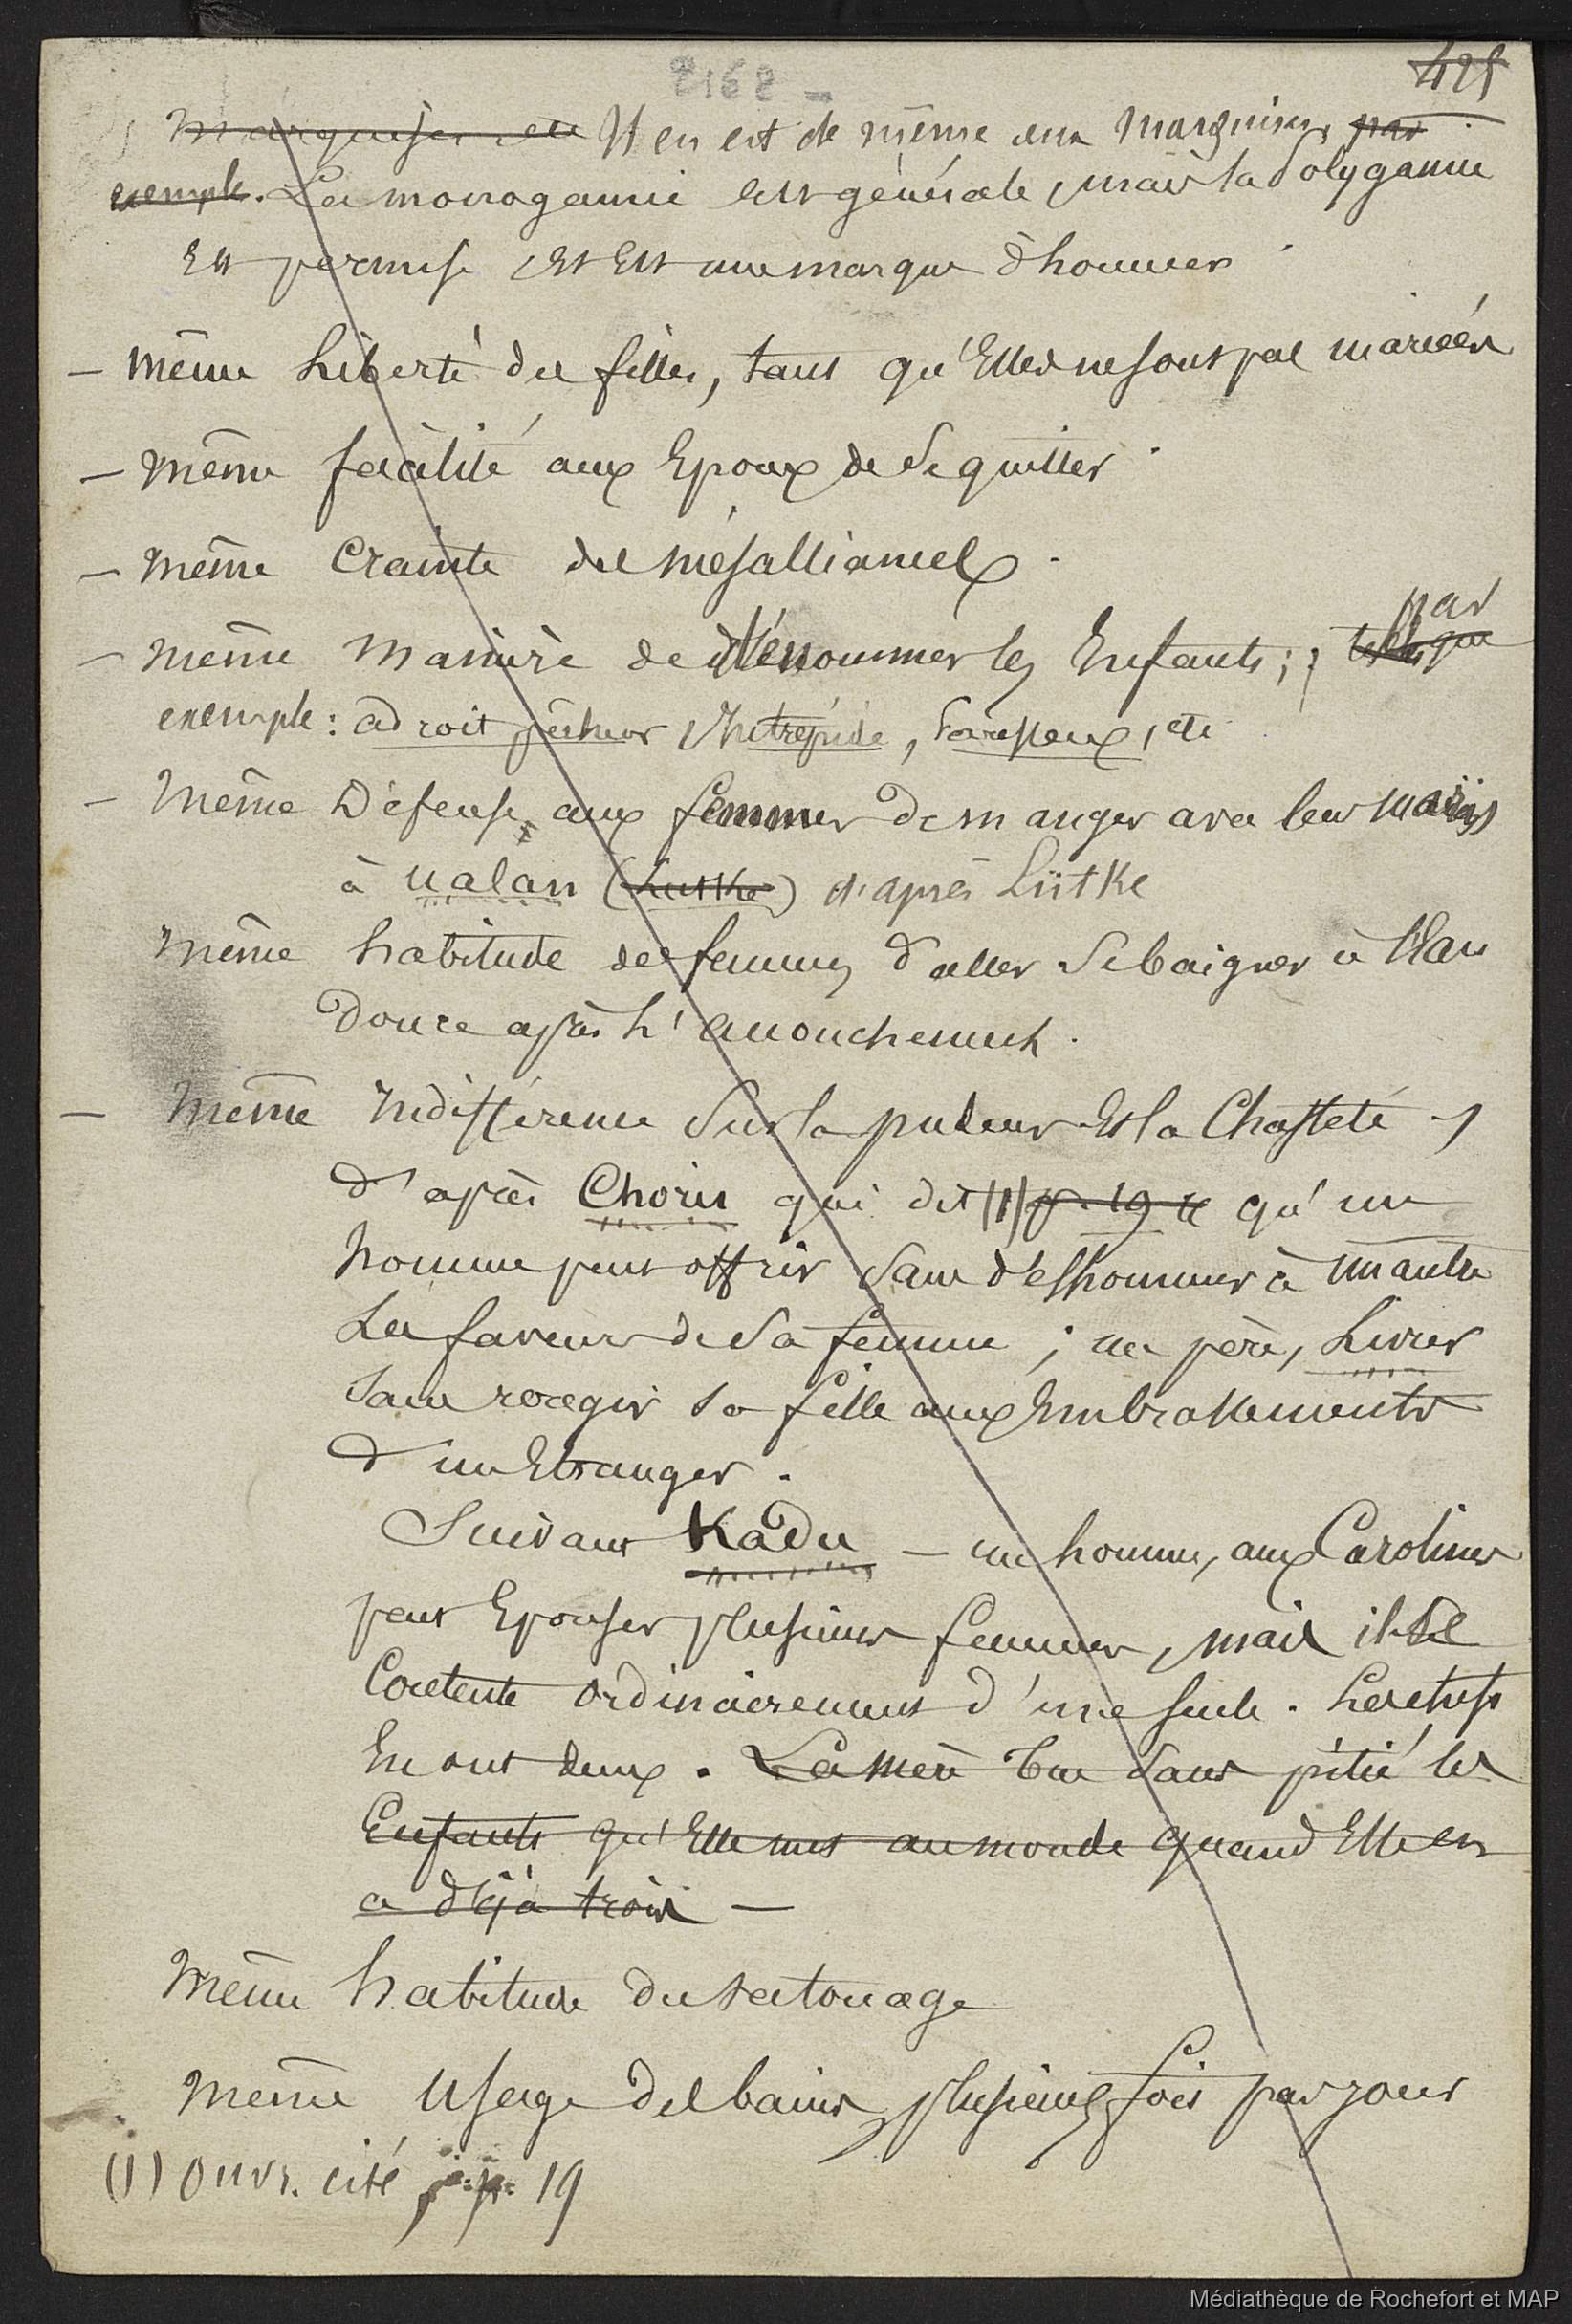 2168 -
425
Marquises en Il en est de même aux Marquises par
exemple. La monogamie est générale, mais la Polygamie
Est permise, et Est une marque d'honneur
— même Liberté des filles, tant qu'Elles ne sont pas mariées
— même facilité aux Epoux de se quitter.
— même crainte des mésalliances.
— même manière de dénommer les Enfants ; par
exemple : adroit pêcheur, Intrépide, , etc
— même Défense, aux femmes de manger avec leurs maris
à ualan (Lutke) d'après Lütke
même habitude des femmes d'aller se baigner à l'Eau
Douce après l'accouchement.
— même Indifférence sur la pudeur et la Chasteté,
d'après Choris qui dit (1) p. 19 qu'un
homme peut offrir sans déshonneur à un autre
Les faveurs de sa femme ; un père, Livrer
sans rougir sa fille aux Embrassements
d'un Etranger.
Suivant Kadu — un homme, aux Carolines
peut Epouser plusieurs femmes, mais il se
Contente ordinairement d'une seule. Les chefs
En ont deux. La mère tue sans pitié les
Enfants qu'Elle met au monde quand Elle en
a déjà trois —
même habitude du tatouage
même usage des bains, plusieurs fois par jour
(1) ouvr. cité, p. 19
Médiathèque de Rochefort et MAP